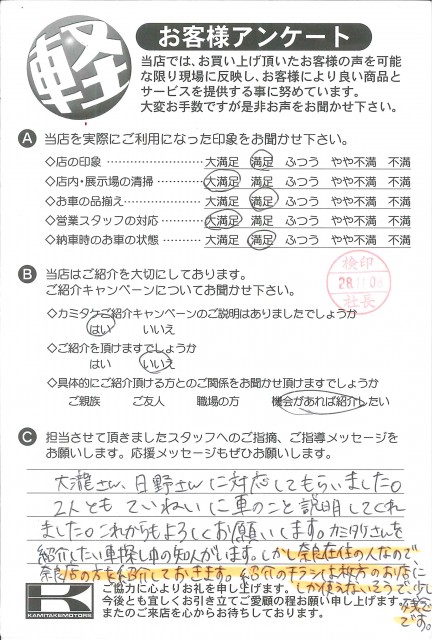 軽
お客様アンケート
当店では、お買い上げ頂いたお客様の声を可能
な限り現場に反映し、お客様により良い商品と
サービスを提供する事に努めています。
大変お手数ですが是非お声をお聞かせ下さい。
A 当店を実際にご利用になった印象をお聞かせ下さい。
◇店の印象 大満足 満足 ふつう やや不満 不満
◇店内・展示場の清掃 大満足 満足 ふつう やや不満 不満
◇お車の品揃え 大満足 満足 ふつう やや不満 不満
◇営業スタッフの対応 大満足 満足 ふつう やや不満 不満
◇納車時のお車の状態 大満足 満足 ふつう やや不満 不満
B 当店はご紹介を大切にしております。
ご紹介キャンペーンについてお聞かせ下さい。
検印
社長
◇カミタケご紹介キャンペーンのご説明はありましたでしょうか
はい いいえ
◇ご紹介を頂けますでしょうか
はい いいえ
◇具体的にご紹介頂ける方とのご関係をお聞かせ頂けますでしょうか
ご親族 ご友人 職場の方 機会があれば紹介したい
C 担当させて頂きましたスタッフへのご指摘、ご指導メッセージを
お願いします。応援メッセージもぜひお願いします。
大瀧さん、日野さんに対応してもらいました。
2人ともていねいに車のこと説明してくれ
ました。これからもよろしくお願いします。カミタケさんを
紹介したい車探し中の知人がいます。しかし奈良在住の人なので、
奈良店の方を紹介しておきます。紹介のチラシは枚方のお店に
しか使えないそうで、少し
残念
です。
ご協力に心よりお礼を申し上げます。
今後とも宜しくお引き立てご愛顧の程お願い申し上げます。
またのご来店を心からお待ちしております。
KAMITAKEMOTORS